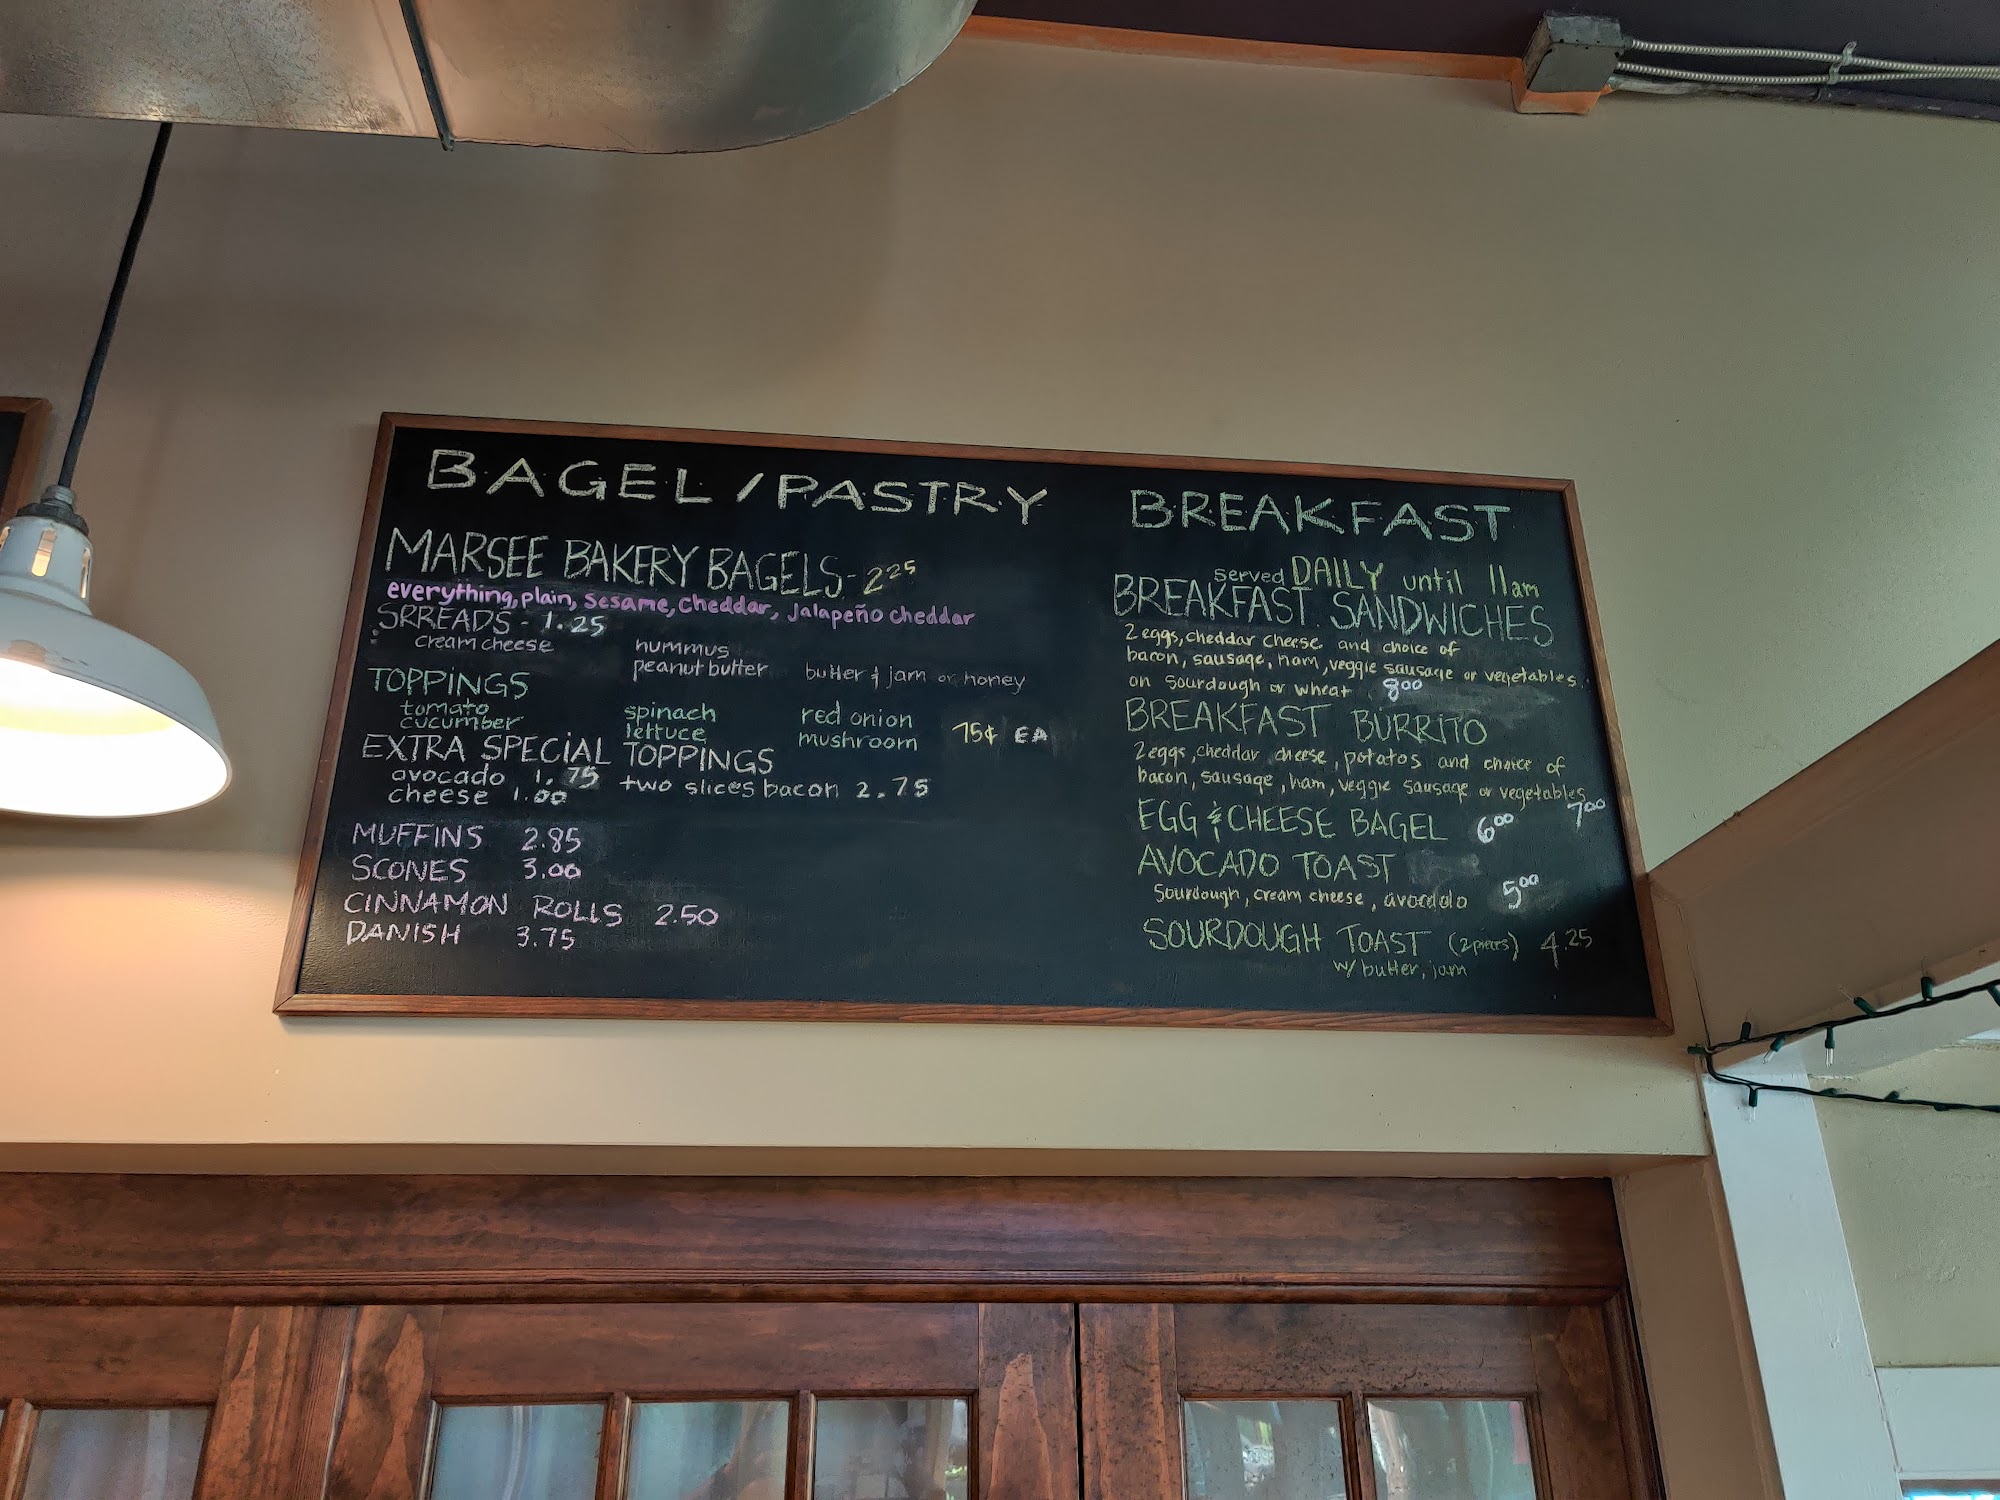 BAGEL/PASTRY
MARSEE BAKERY BAGELS- 2 25
everything, plain, sesame, cheddar, jalapeño cheddar
SRREADS - 1.25
cream cheese
hummus
peanut butter
butter & jam or honey
TOPPINGS
tomato spinach red onion
cucumber lettuce mushroom 75¢ EA
EXTRA SPECIAL TOPPINGS
avocado 1.75 two slices bacon 2.75
cheese 1.00
MUFFINS 2.85
SCONES 3.00
CINNAMON ROLLS 2.50
DANISH 3.75
BREAKFAST
served DAILY until 11am
BREAKFAST SANDWICHES
2 eggs, cheddar cheese and choice of
bacon, sausage, ham, veggie sausage or vegetables
on sourdough or wheat 8 00
BREAKFAST BURRITO
2 eggs, cheddar cheese, potatos and choice of
bacon, sausage, ham, veggie sausage or vegetables
7 00
EGG & CHEESE BAGEL 6 00
AVOCADO TOAST
Sourdough, cream cheese, avocado 5 00
SOURDOUGH TOAST (2 pieces) 4.25
w/ butter, jam